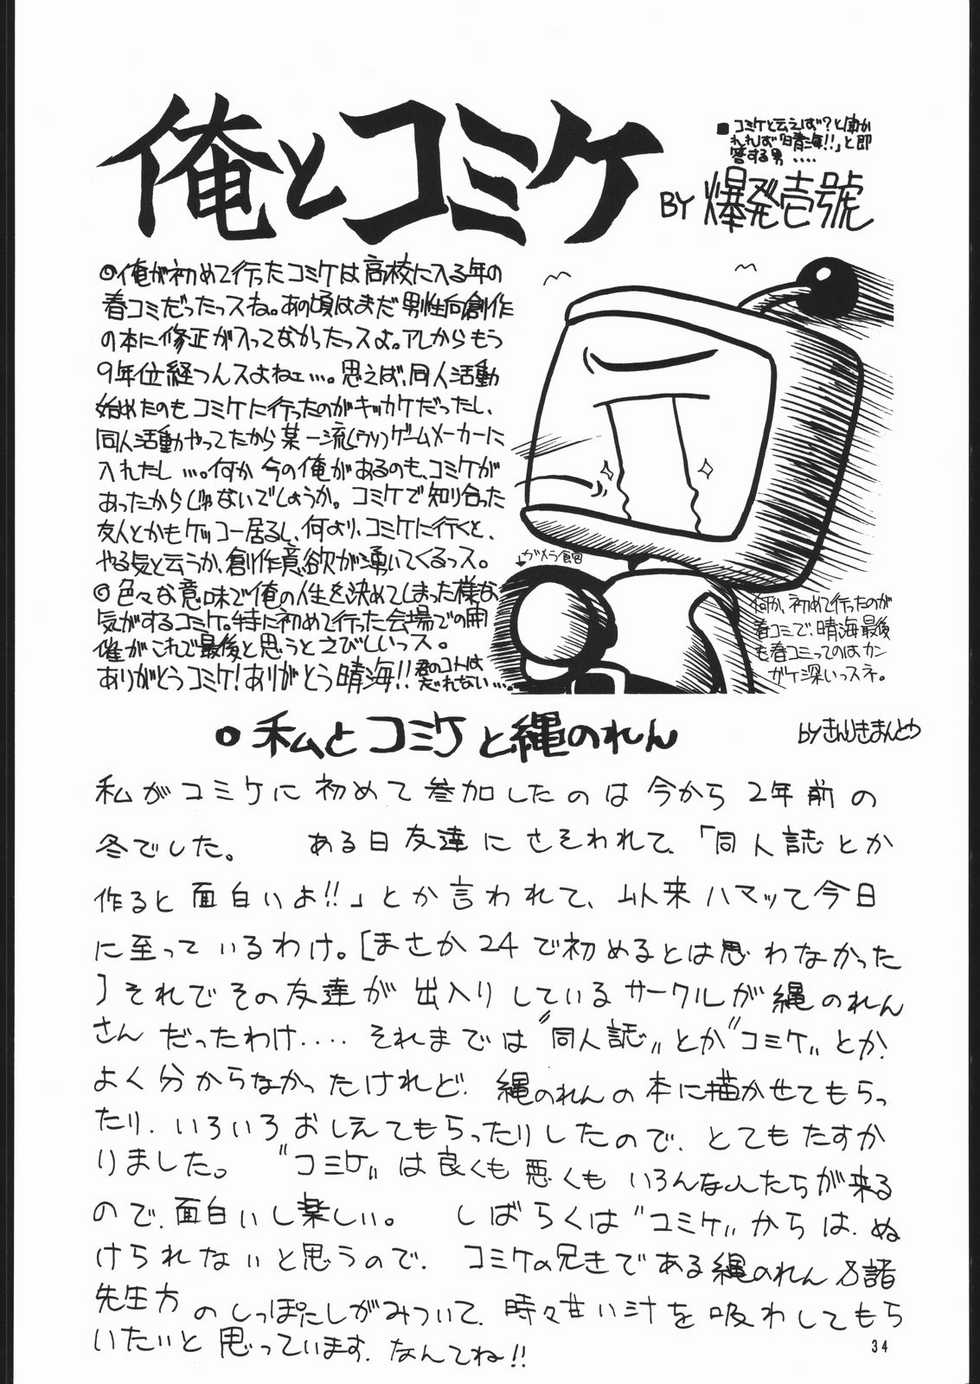 俺とコミケ
■コミケと云えば?と聞か
れれば「晴海!!」と即
答する男....
BY 爆発壱號
◎俺が初めて行ったコミケは高校に入る年の
春コミだったっスね。あの頃はまだ男性向創作
の本に修正が入ってなかったっスよ。アレからもう
9年位経つんスよねェ…。思えば、同人活動
始めたのもコミケに行ったのがキッカケだったし、
同人活動やってたから某一流(ウソ)ゲームメーカーに
入れたし…。何か今の俺があるのも、コミケが
あったからじゃないでしょうか。コミケで知り合った
友人とかもケッコー居るし、何より、コミケに行くと、
やる気と云うか、創作意欲が湧いてくるっス。
◎色々な意味で俺の人生を決めてしまった様な
気がするコミケ。特に初めて行った会場での開
催がこれで最後と思うとさびしいっス。
ありがとうコミケ!ありがとう晴海!!君のコトは
忘れない…。
↓ガメラ食回
何か、初めて行ったのが
春コミで、晴海最後
も春コミってのは、カン
ガケ深いっスネ。
○私とコミケと縄のれん
byきんにきまんとう
私がコミケに初めて参加したのは今から2年前の
冬でした。 ある日友達にさそわれて、「同人誌とか
作ると面白いよ!!」とか言われて、以来ハマッて今日
に至っているわけ。[まさか24で初めるとは思わなかった
]それでその友達が出入りしているサークルが縄のれん
さんだったわけ.... それまでは"同人誌"とか"コミケ"とか、
よく分からなかったけれど、縄のれんの本に描かせてもらっ
たり、いろいろおしえてもらったりしたので、とてもたすか
りました。 "コミケ"は良くも悪くもいろんな人たちが来る
ので、面白いし楽しい。 しばらくは"コミケ"からは、ぬ
けられないと思うので、コミケの兄きである縄のれん&諸
先生方のしっぽにしがみついて、時々甘い汁を吸わしてもら
いたいと思っています、なんてね!!
34